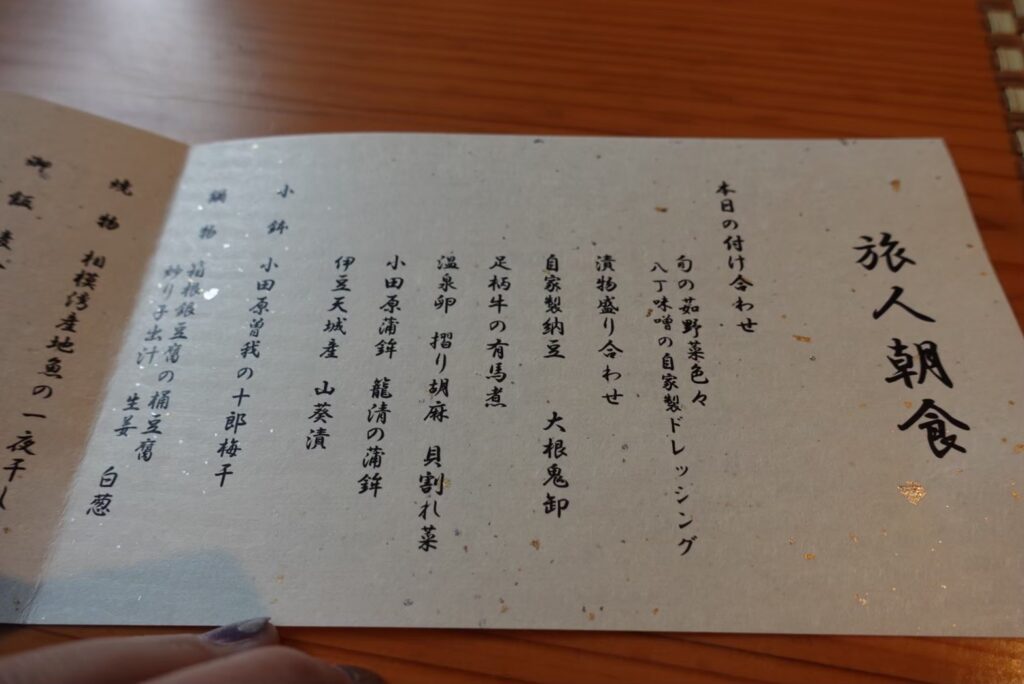 旅人朝食
本日の付け合わせ
旬の茹野菜色々
八丁味噌の自家製ドレッシング
漬物盛り合わせ
自家製納豆 大根鬼卸
足柄牛の有馬煮
温泉卵 摺り胡麻 貝割れ菜
小田原蒲鉾 籠清の蒲鉾
伊豆天城産 山葵漬
小鉢 小田原曽我の十郎梅干
鍋物 箱根銀豆腐の桶豆腐
炒り子出汁 生姜 白葱
焼物 相模湾産地魚の一夜干し
御飯